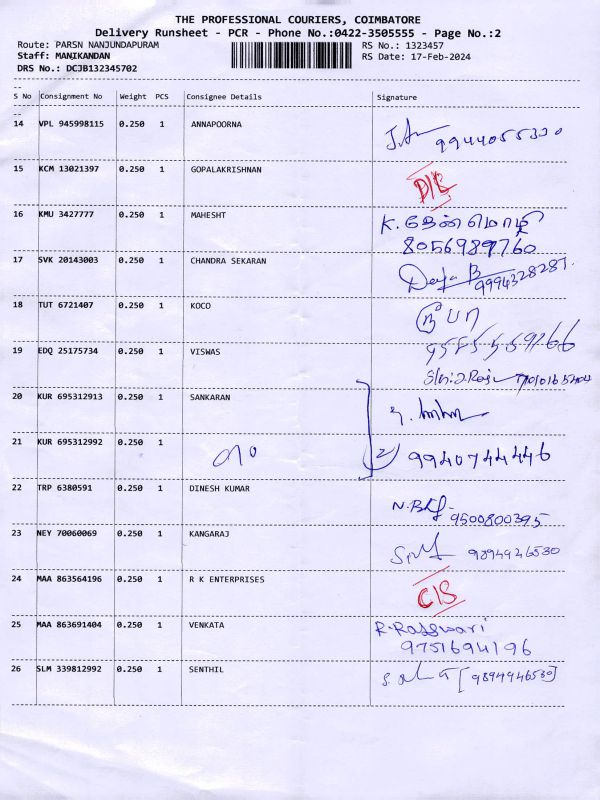 THE PROFESSIONAL COURIERS, COIMBATORE
Delivery Runsheet - PCR - Phone No.:0422-3505555 - Page No.:2
Route: PARSN NANJUNDAPURAM RS No.: 1323457
Staff: MANIKANDAN RS Date: 17-Feb-2024
DRS No.: DCJB132345702
--
S No Consignment No Weight PCS Consignee Details Signature
--
14 VPL 945998115 0.250 1 ANNAPOORNA
9944055330
15 KCM 13021397 0.250 1 GOPALAKRISHNAN
D/L
16 KMU 3427777 0.250 1 MAHESHT K. தேன்மொழி
8056989760
17 SVK 20143003 0.250 1 CHANDRA SEKARAN
9994328287.
18 TUT 6721407 0.250 1 KOCO தீபா
19 EDQ 25175734 0.250 1 VISWAS
20 KUR 695312913 0.250 1 SANKARAN
21 KUR 695312992 0.250 1 2) 9940744446
22 TRP 6380591 0.250 1 DINESH KUMAR
9500800395
23 NEY 70060069 0.250 1 KANGARAJ
9894946530
24 MAA 863564196 0.250 1 R K ENTERPRISES
C/S
25 MAA 863691404 0.250 1 VENKATA R. Rasswari
9751694196
26 SLM 339812992 0.250 1 SENTHIL [9894946530]